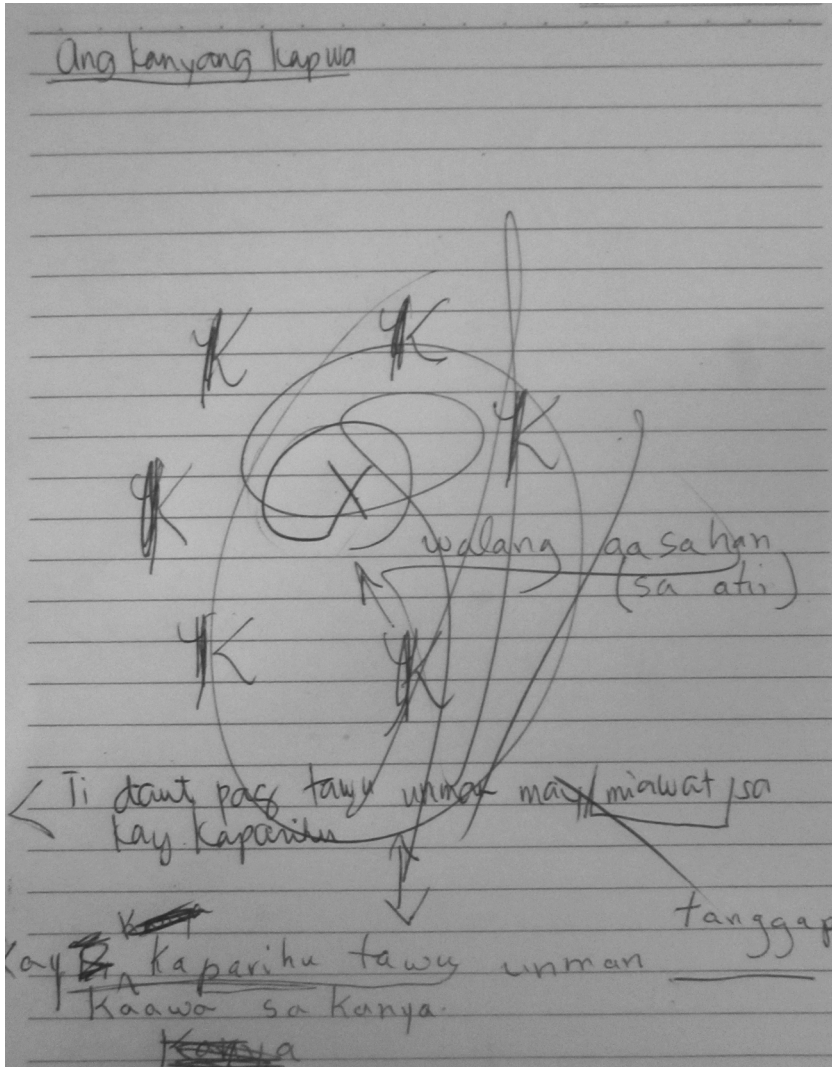 Ang kanyang kapwa
K
K
K
K
X
walang aasahan
(sa atin)
K
K
Ti daut pag tawu unman may miawat sa
kay kaparihu
tanggap
kay kaparihu tawu unman
kaawa sa kanya.